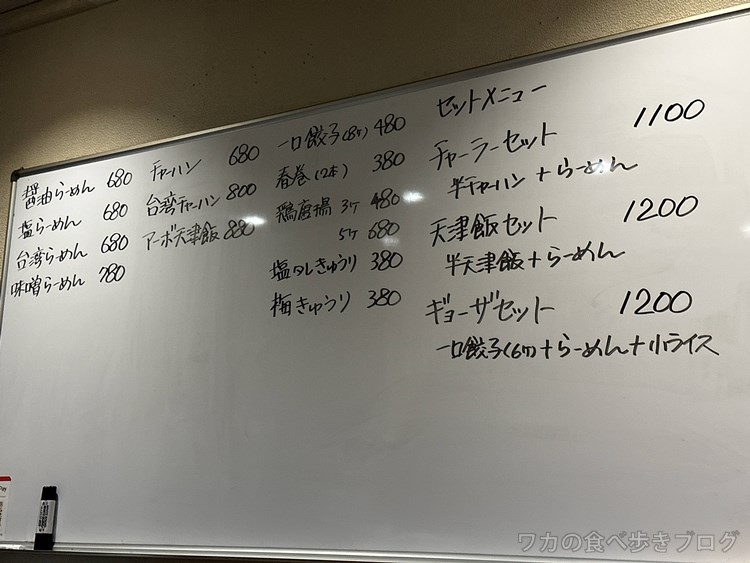 醤油らーめん 680
塩らーめん 680
台湾らーめん 680
味噌らーめん 780
チャーハン 680
台湾チャーハン 800
マーボ天津飯 880
一口餃子(8ヶ) 480
春巻(2本) 380
鶏唐揚 3ヶ 480
5ヶ 680
塩タレきゅうり 380
梅きゅうり 380
セットメニュー
チャーラーセット 1100
半チャーハン+らーめん
天津飯セット 1200
半天津飯+らーめん
ギョーザセット 1200
一口餃子(6ヶ)+らーめん+小ライス
ワカの食べ歩きブログ